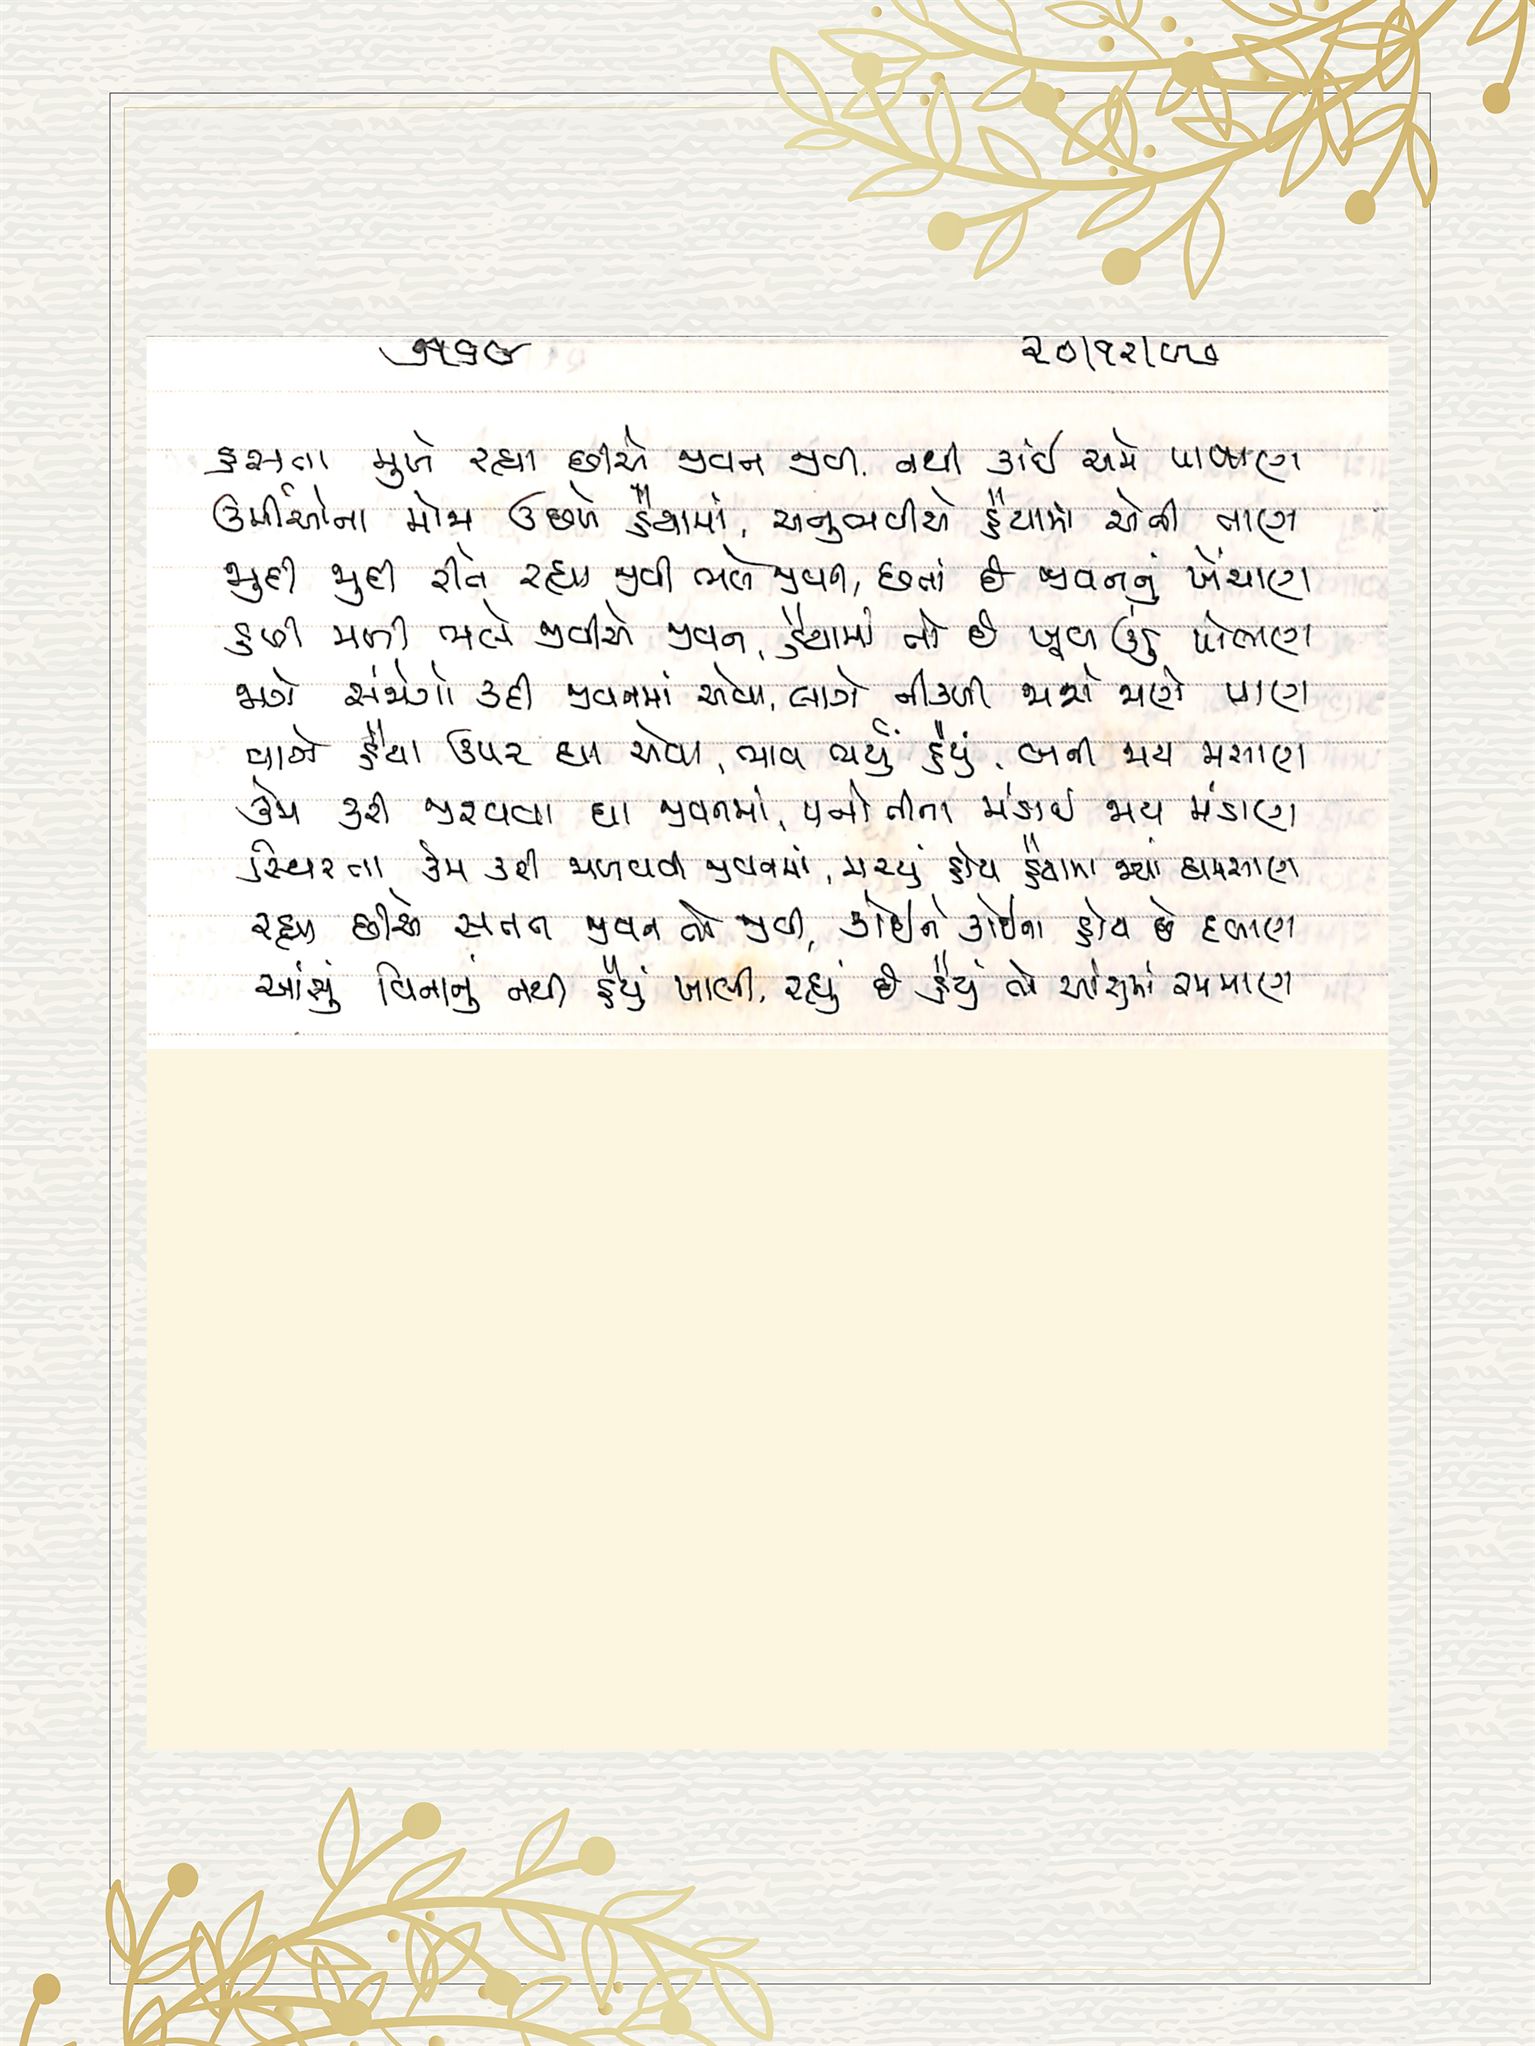 ૨૦/૧૨/૯૭
હસતા મુખે રહ્યા છીએ જીવન જીવી, નથી કાંઈ અમે પાષાણ
ઉર્મીઓના મોજા ઉછળે હૈયામાં, અનુભવીએ હૈયામાં એની તાણ
જુદી જુદી રીતે રહ્યા જીવી ભલે જીવન, છતાં છે જીવનનું ખેંચાણ
હળી મળી ભલે જીવીએ જીવન, હૈયામાં તો છે ખૂબ ઉંડુ પોલાણ
જાગે સંજોગો કદી જીવનમાં એવા, લાગે નીકળી જાશે જાણે પ્રાણ
વાગે હૈયા ઉપર ઘા એવા, ભાવ ભર્યું હૈયું, બની જાય મસાણ
કેમ કરી જીરવવા ઘા જીવનમાં, પનોતીના મંડાઈ જાય મંડાણ
સ્થિરતા કેમ કરી મેળવવી જીવનમાં, મચ્યું હોય હૈયામાં જ્યાં ઘમસાણ
રહ્યા છીએ સતત જીવન તો જીવી, કોઈને કોઈના હોય છે દબાણ
આંસું વિનાનું નથી હૈયું ખાલી, રહ્યું છે હૈયું તો આંસુમાં રમમાણ